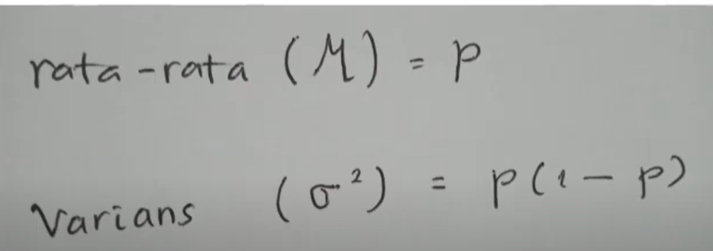 rata-rata (μ) = p
Varians (σ²) = p(1-p)